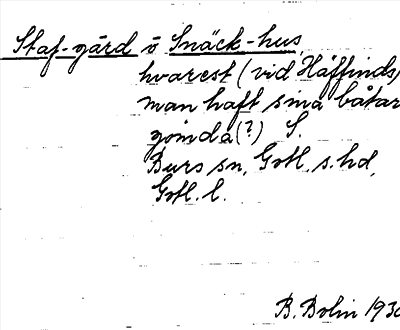 Staf-gård o Snäck-hus,
hvarest (vid Häffinds)
man haft sina båtar
gömda (?) S.
Burs sn, Gotl. s. hd,
Gotl. l.
B. Bolin 1930